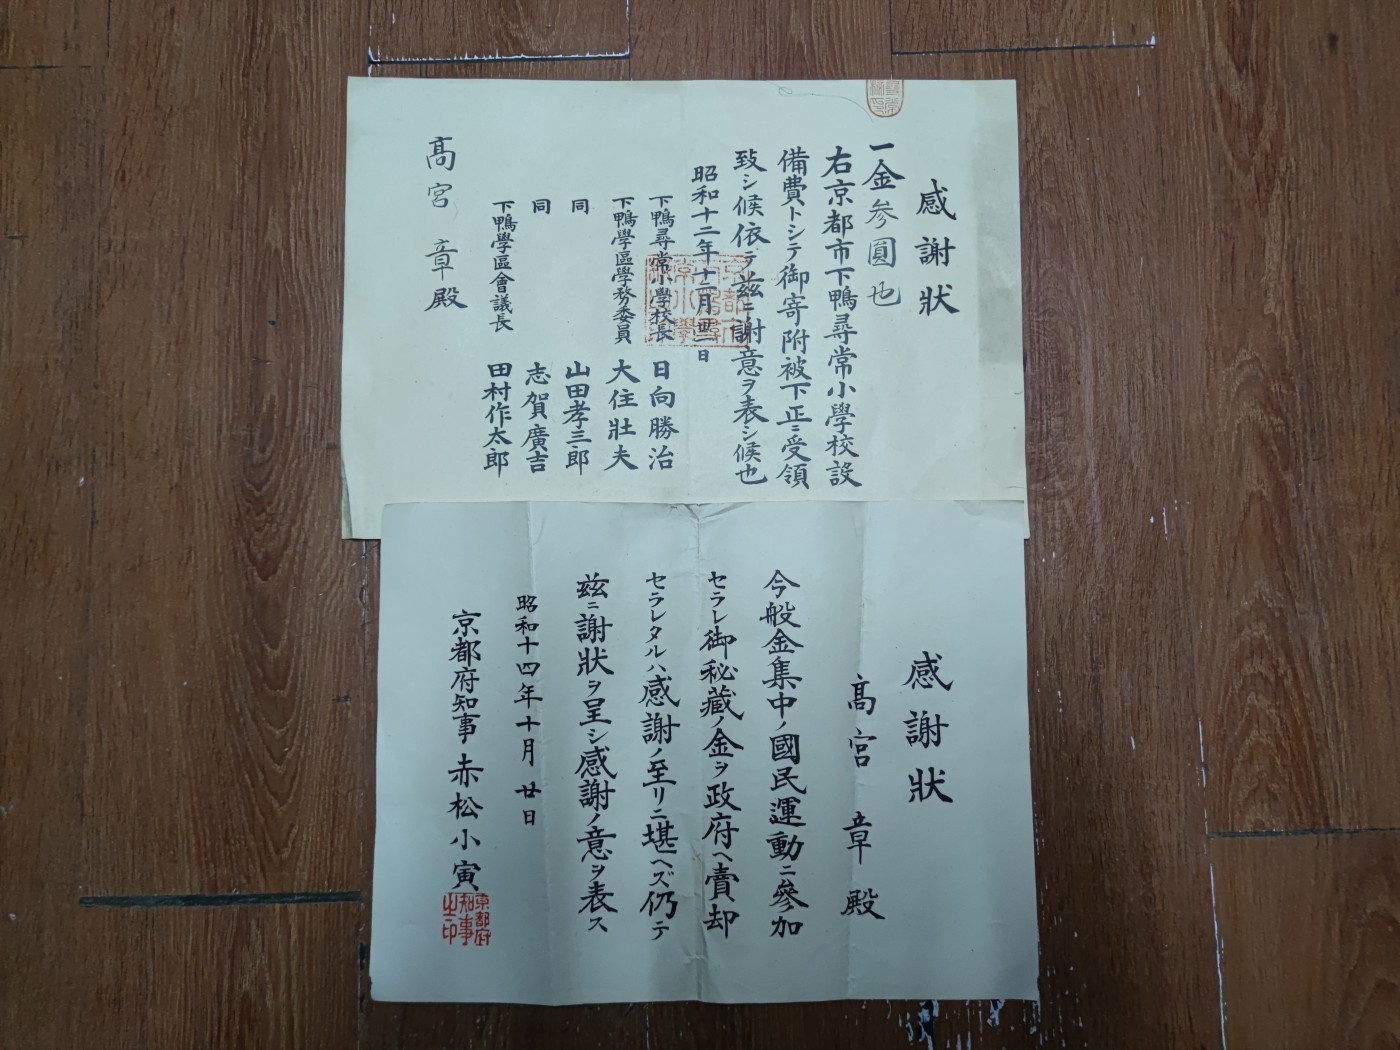 感謝狀
一金参圓也
右京都市下鴨尋常小學校設
備費トシテ御寄附被下正ニ受領
致シ候依テ茲ニ謝意ヲ表シ候也
昭和十二年十二月廿一日
下鴨尋常小學校長 日向勝治
下鴨學區學務委員 大住壯夫
同 山田孝三郎
同 志賀廣吉
下鴨學區會議長 田村作太郎
髙宮 章殿
感謝狀
髙宮 章殿
今般金集中ノ國民運動ニ參加
セラレ御秘藏ノ金ヲ政府ヘ賣却
セラレタルハ感謝ノ至リニ堪ヘズ仍テ
茲ニ謝狀ヲ呈シ感謝ノ意ヲ表ス
昭和十四年十月廿日
京都府知事 赤松小寅
京都府
知事
之印